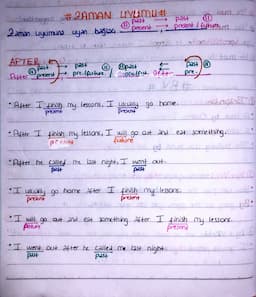 #ZAMAN UYUMU#
past past
present present / future
Zaman uyumuna uyan bağlaç
AFTER
past past past past
After present , pre./future pre.
• After I finish my lessons, I usually go home.
present present
• After I finish my lessons, I will go out and eat something.
present future
• After he called me last night, I went out.
past past
• I usually go home after I finish my lessons.
present present
• I will go out and eat something after I finish my lessons.
future present
• I went out after he called me last night.
past past